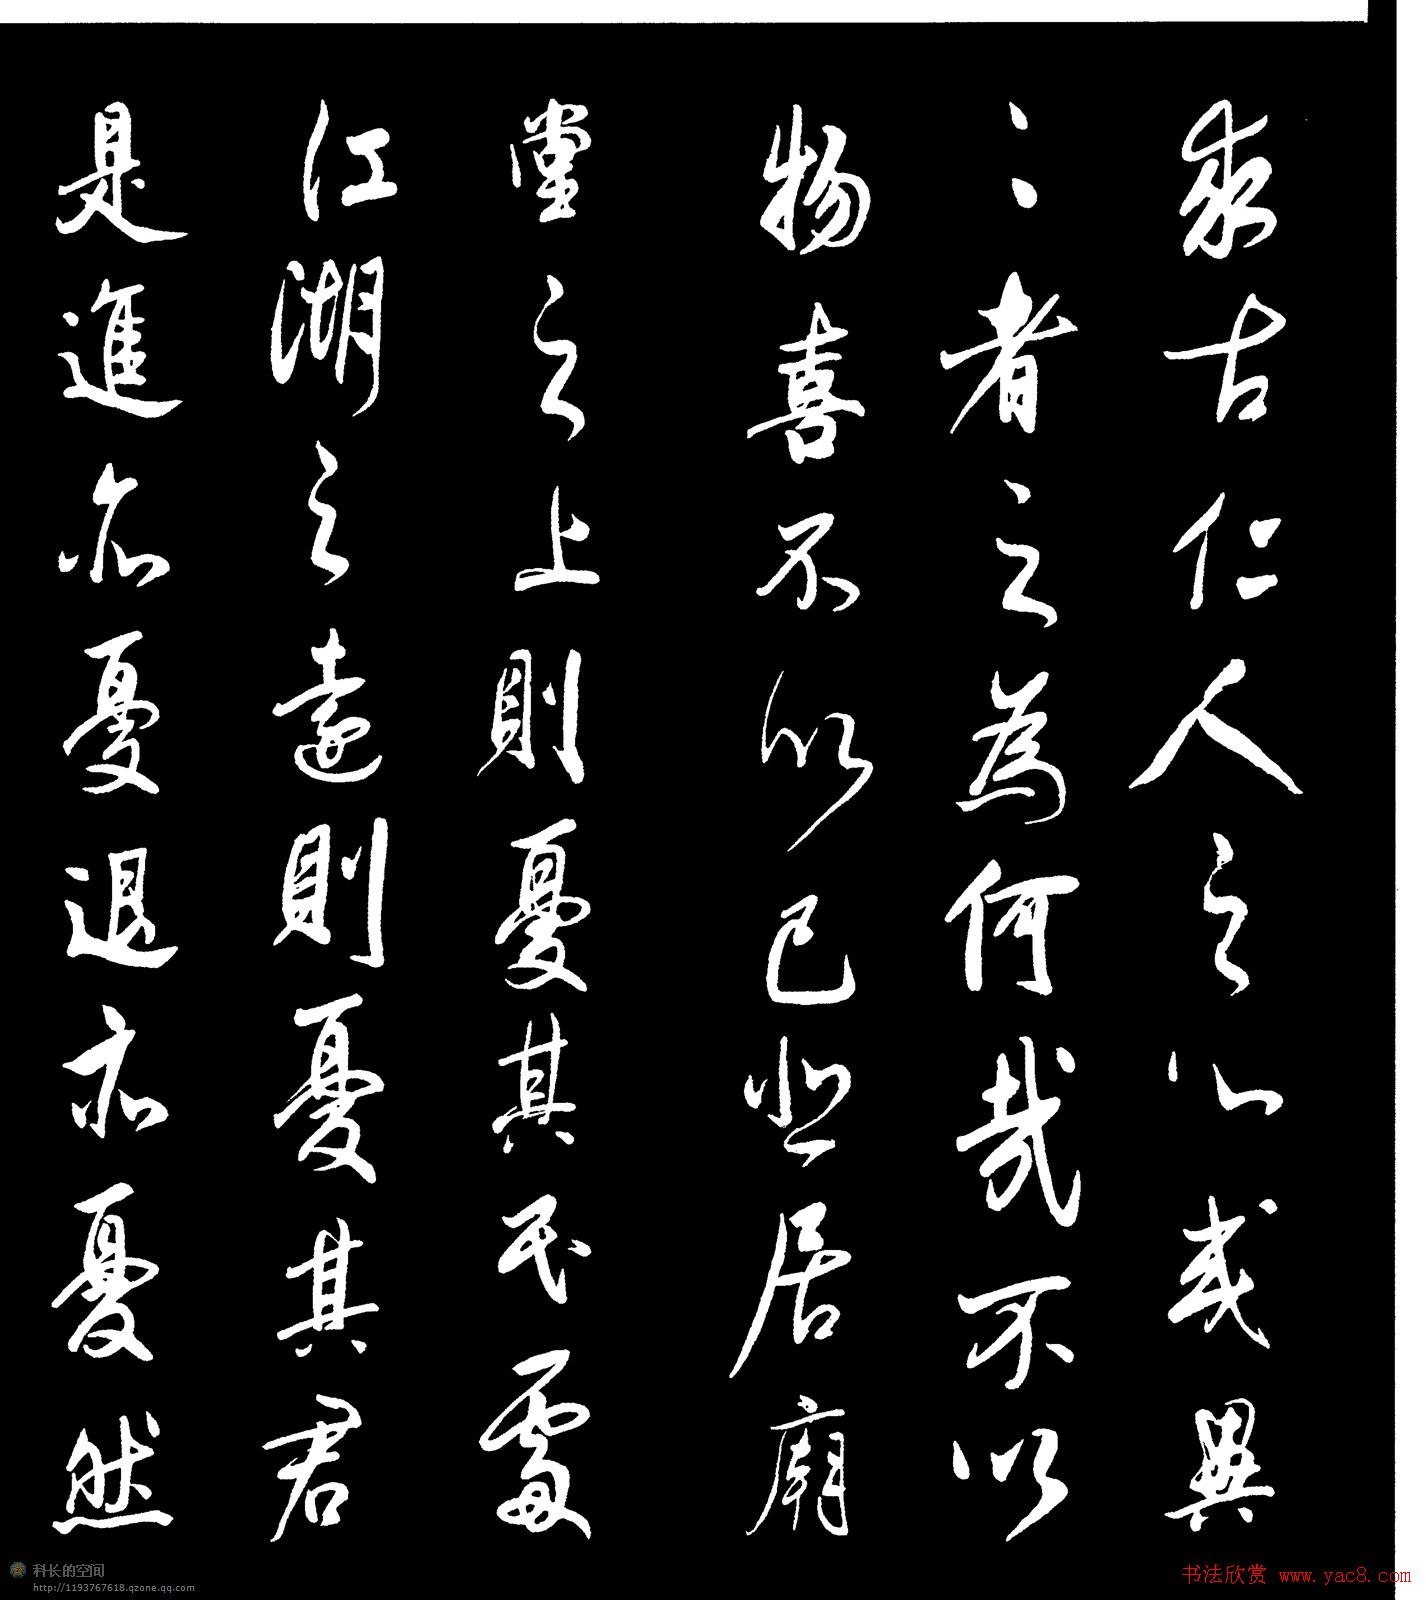 求古仁人之心或異
二者之為何哉不以
物喜不以己悲居廟
堂之上則憂其民處
江湖之遠則憂其君
是進亦憂退亦憂然
科长的空间
http://1193767618.qzone.qq.com
书法欣赏 www.yac8.com